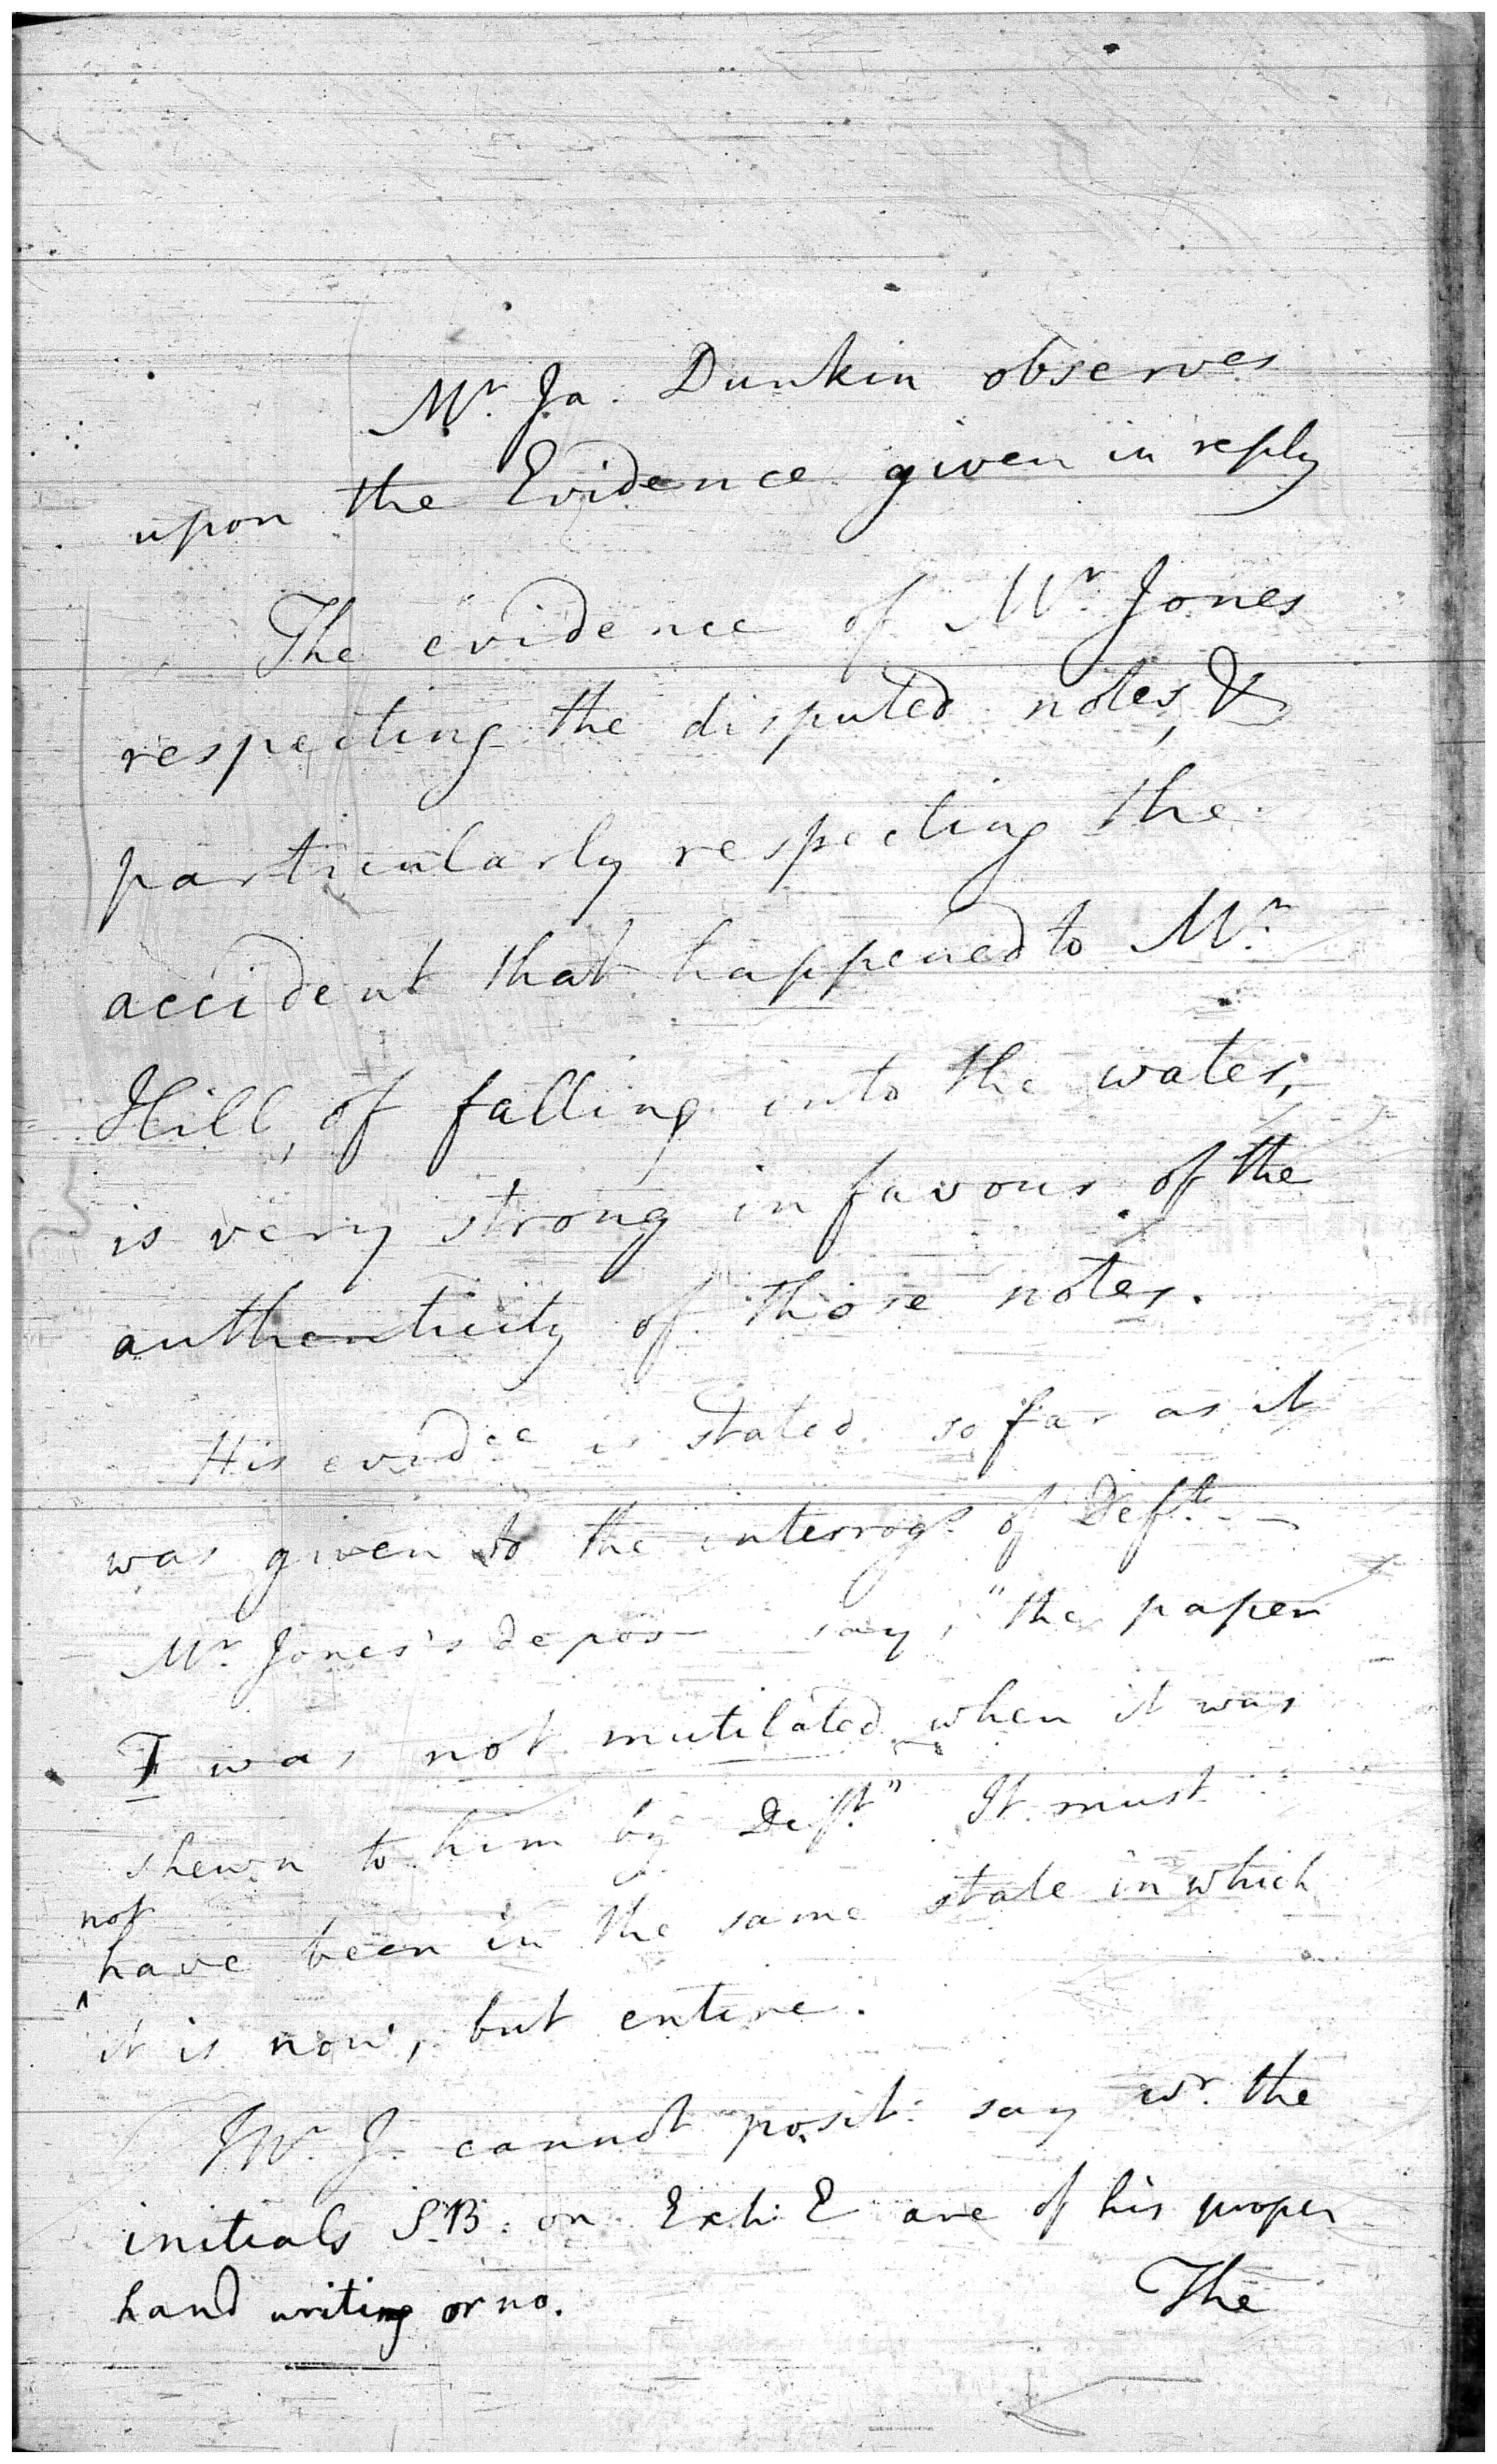 Mr. Ja. Dunkin observes
upon the Evidence given in reply
The evidence of Mr. Jones
respecting the disputed notes, &
particularly respecting the
accident that happened to Mr.
Hill, of falling into the water,
is very strong in favour of the
authenticity of those notes.
His evidce is stated so far as it
was given to the interrogs. of Deft. --
Mr. Jones's depos- say, "the paper
I was not mutilated when it was
shewn to him by Deft." It must
not
have been in the same state in which
^
it is now, but entire.
Mr. J. cannot posit: say wr. the
initials S.B. on Exh: E are of his proper
hand writing or no.
The